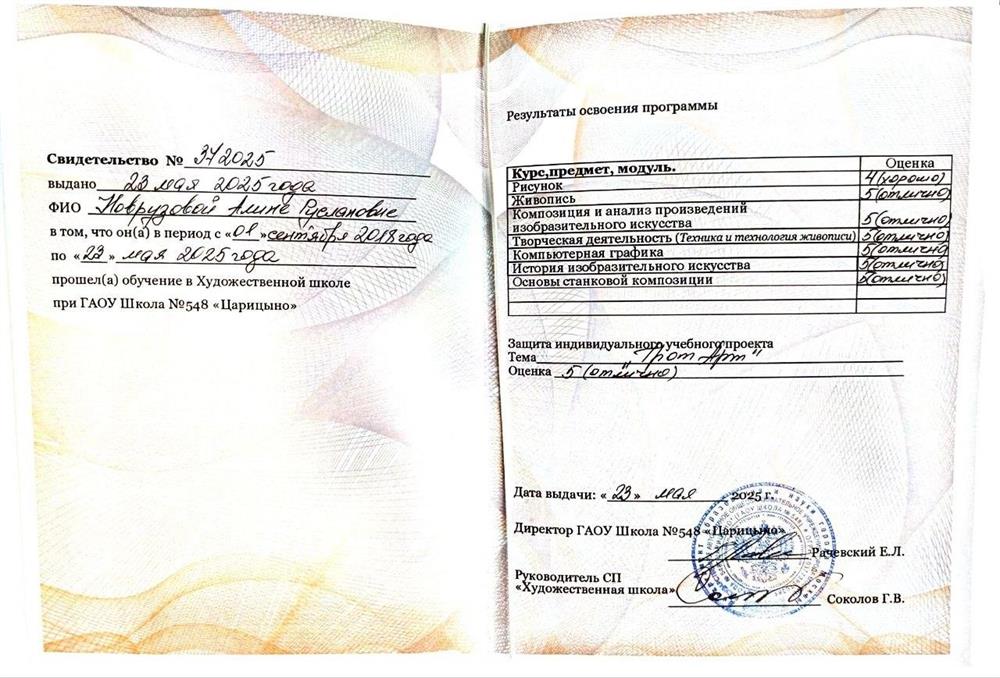 Свидетельство № 37 2025
выдано 23 мая 2025 года
ФИО Новрузовой Алине Руслановне
в том, что он(а) в период с «01» сентября 2018 года
по «23» мая 2025 года
прошел(а) обучение в Художественной школе
при ГАОУ Школа №548 «Царицыно»
Результаты освоения программы
Курс,предмет, модуль. Оценка
Рисунок 4 (хорошо)
Живопись 5 (отлично)
Композиция и анализ произведений
изобразительного искусства 5 (отлично)
Творческая деятельность (Техника и технология живописи) 5 (отлично)
Компьютерная графика 5 (отлично)
История изобразительного искусства 5 (отлично)
Основы станковой композиции (отлично)
Защита индивидуального учебного проекта
Тема "Трот Арт"
Оценка 5 (отлично)
Дата выдачи: «23» мая 2025 г.
Директор ГАОУ Школа №548 «Царицыно»
Рачевский Е.Л.
Руководитель СП
«Художественная школа»
Соколов Г.В.